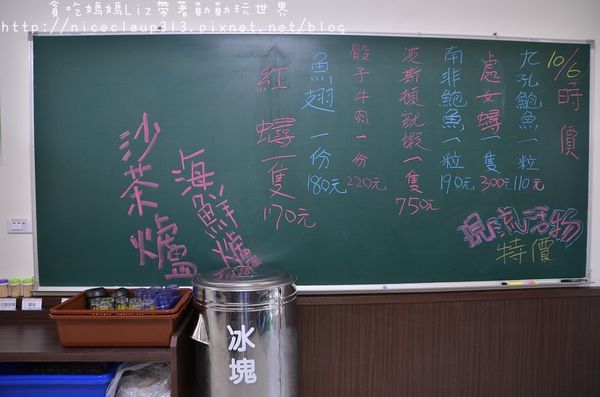 貪吃媽媽Liz帶著勛勛玩世界
http://niceclaup313.pixnet.net/blog
10/6 時價
九孔鮑魚一粒110元
處女蟳一隻300元
南非鮑魚一粒190元
波斯頓龍蝦一隻750元
骰子牛肉一份220元
魚翅一份180元
紅蟳一隻170元
現流活物
特價
海鮮爐
沙茶爐
冰塊